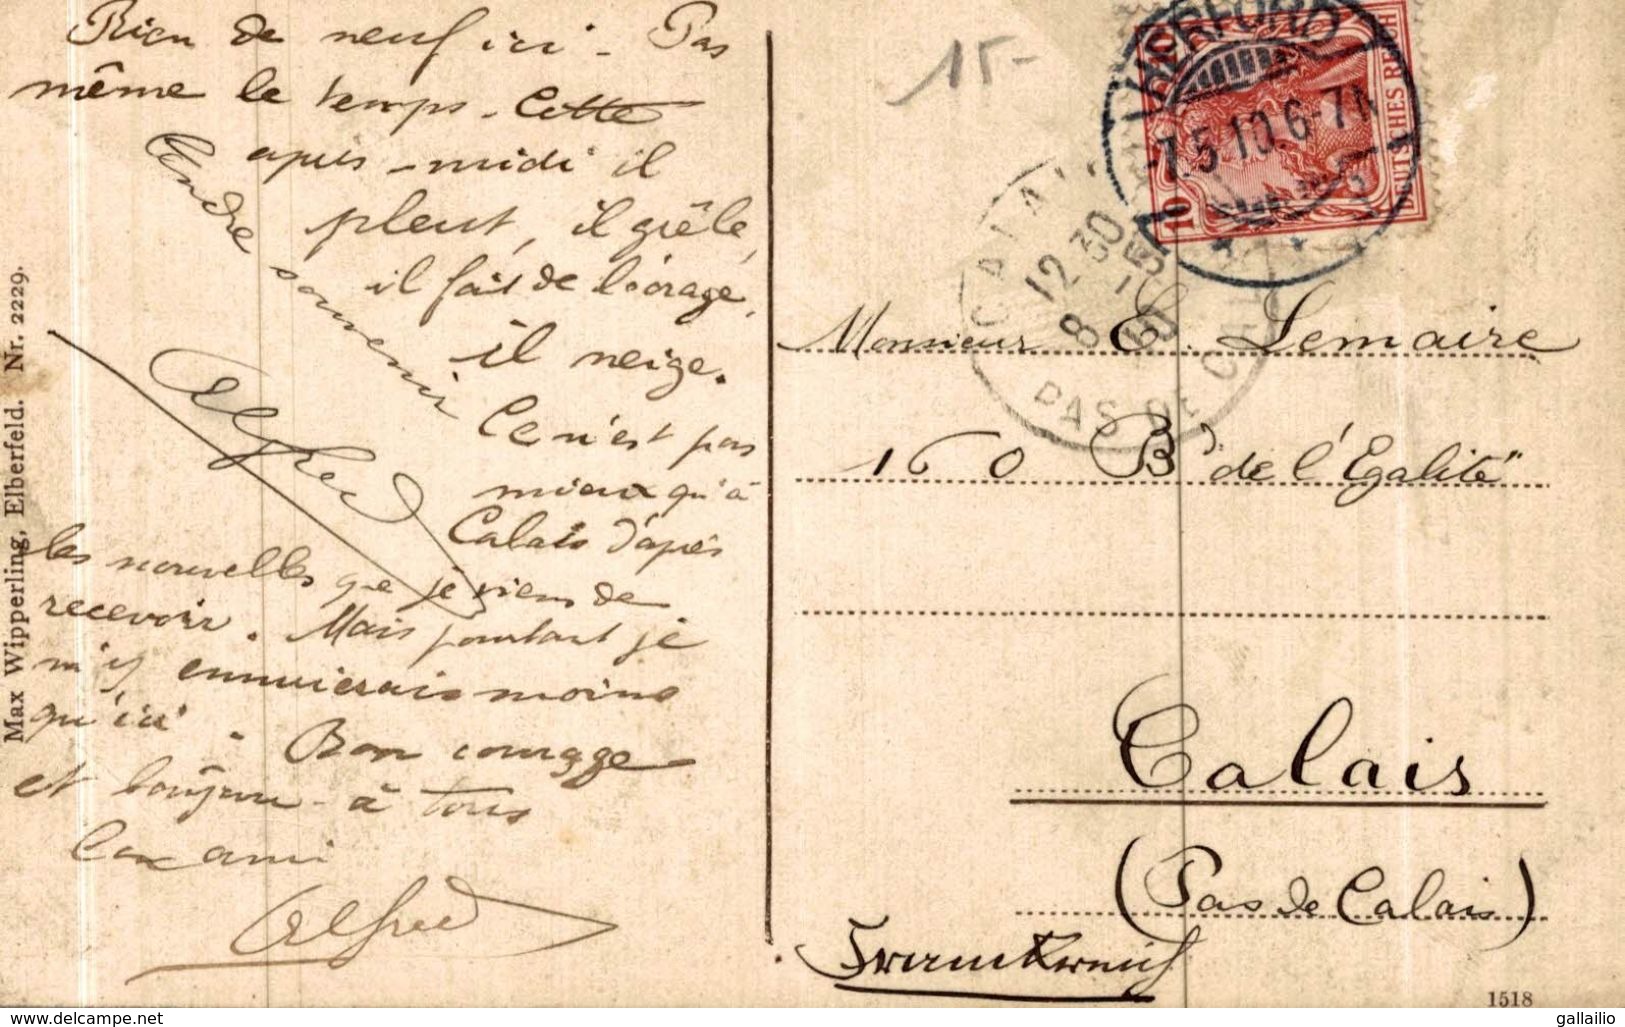 Rien de neuf ici - Pas
même le temps. Cette
après-midi il
pleut, il grêle,
il fait de l'orage,
il neige.
Ce n'est pas
mieux qu'à
Calais d'après
les nouvelles que je viens de
recevoir. Mais pourtant je
m'y ennuierais moins
qu'ici. Bon courage
et bonjour à tous
ami
Alfred
Tendre souvenir
Alfred
Max Wipperling, Elberfeld. Nr. 2229.
15-
HERFORD
7.5.10.6-7
DEUTSCHES REICH
10
CALAIS
12 30
8 - 5
10
PAS DE CALAIS
Monsieur E. Lemaire
160 Bd de l'Egalité
Calais
(Pas de Calais)
Frankreich
1518
www.delcampe.net
gallailio